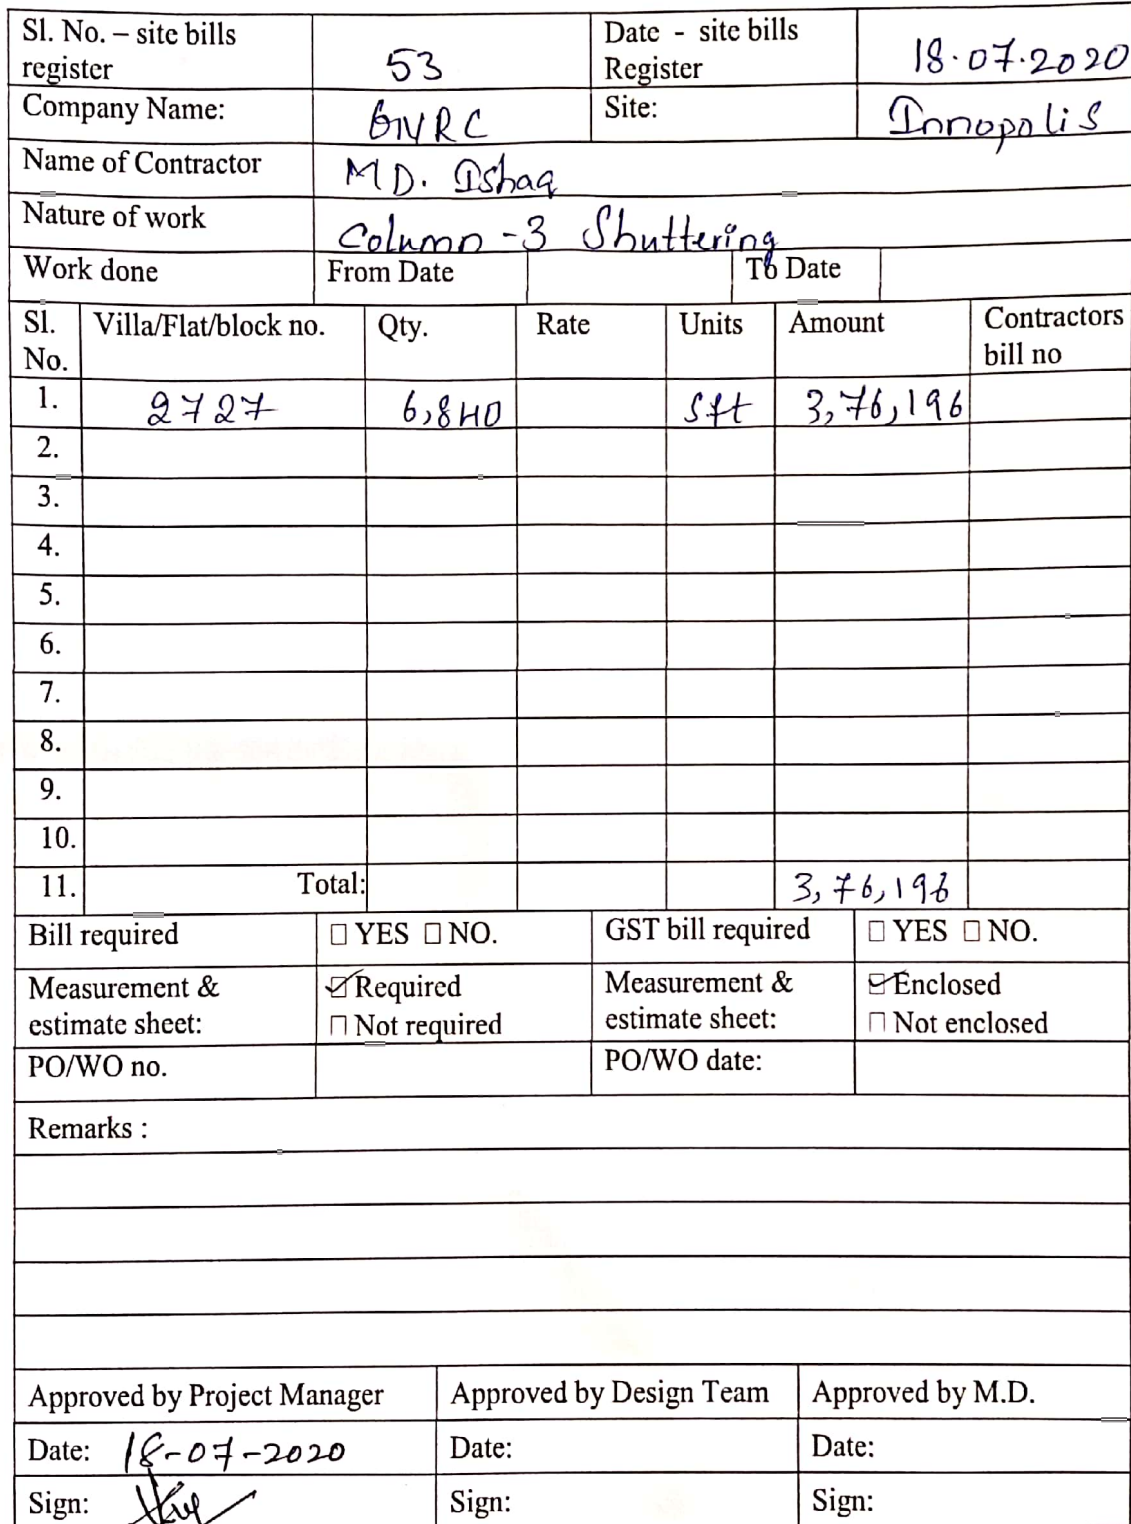 Sl. No. – site bills register 53 Date - site bills Register 18.07.2020
Company Name: GNRC Site: Innopolis
Name of Contractor MD. Ishaq
Nature of work Column-3 Shuttering
Work done From Date To Date
Sl. No. Villa/Flat/block no. Qty. Rate Units Amount Contractors bill no
1. 2727 6,840 Sft 3,76,196
2.
3.
4.
5.
6.
7.
8.
9.
10.
11. Total: 3,76,196
Bill required □ YES □ NO. GST bill required □ YES □ NO.
Measurement & estimate sheet: ☑ Required □ Not required Measurement & estimate sheet: ☑ Enclosed □ Not enclosed
PO/WO no. PO/WO date:
Remarks :
Approved by Project Manager Approved by Design Team Approved by M.D.
Date: 18-07-2020 Date: Date:
Sign: Sign: Sign: